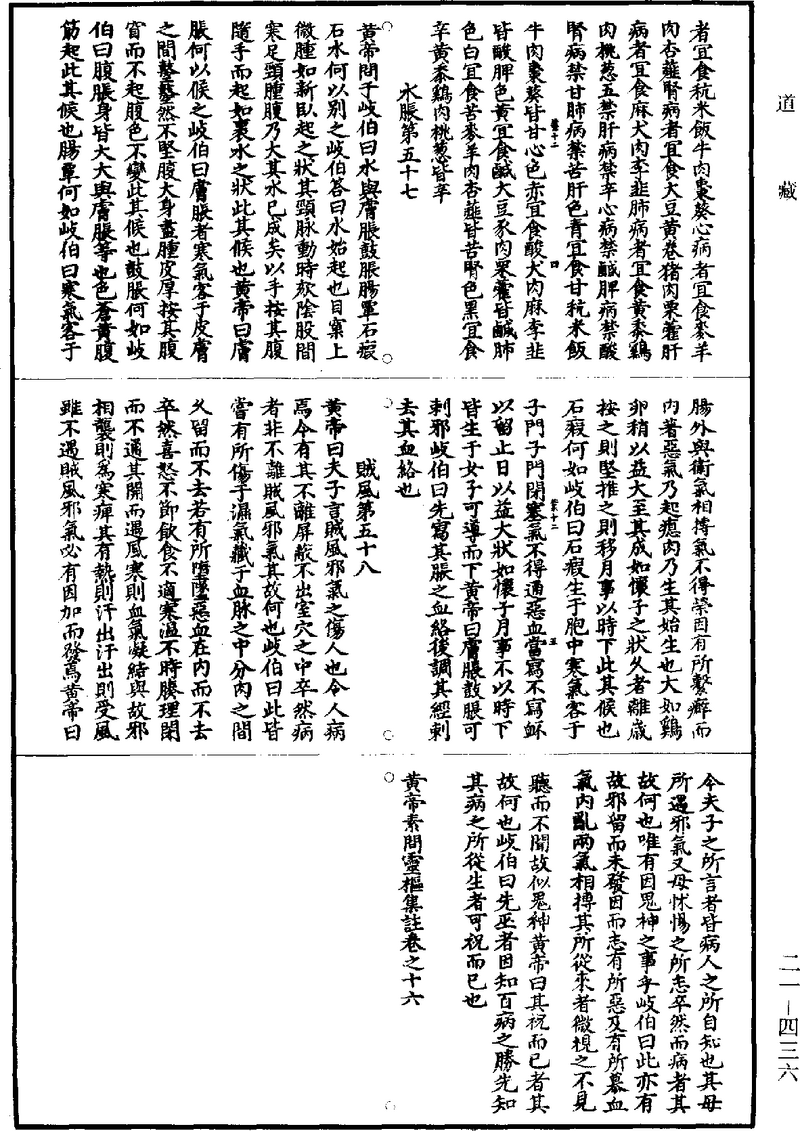 道藏
者宜食秔米飯牛肉棗葵心病者宜食麥羊
肉杏薤腎病者宜食大豆黃卷猪肉栗藿肝
病者宜食麻犬肉李韭肺病者宜食黃黍鷄
肉桃葱五禁肝病禁辛心病禁鹹脾病禁酸
腎病禁甘肺病禁苦肝色青宜食甘秔米飯
牛肉棗葵皆甘心色赤宜食酸犬肉麻李韭
皆酸脾色黃宜食鹹大豆豕肉栗藿皆鹹肺
色白宜食苦麥羊肉杏薤皆苦腎色黑宜食
辛黃黍鷄肉桃葱皆辛
水脹第五十七
黃帝問于岐伯曰水與膚脹鼓脹腸覃石瘕
石水何以別之岐伯答曰水始起也目窠上
微腫如新臥起之狀其頸脉動時欬陰股間
寒足頸腫腹乃大其水已成矣以手按其腹
隨手而起如裹水之狀此其候也黃帝曰膚
脹何以候之岐伯曰膚脹者寒氣客于皮膚
之間㲉㲉然不堅腹大身盡腫皮厚按其腹
窅而不起腹色不變此其候也鼓脹何如岐
伯曰腹脹身皆大大與膚脹等也色蒼黃腹
筋起此其候也腸覃何如岐伯曰寒氣客于
腸外與衛氣相搏氣不得榮因有所繫癖而
內著惡氣乃起瘜肉乃生其始生也大如鷄
卵稍以益大至其成如懷子之狀久者離歲
按之則堅推之則移月事以時下此其候也
石瘕何如岐伯曰石瘕生于胞中寒氣客于
子門子門閉塞氣不得通惡血當寫不寫衃
以留止日以益大狀如懷子月事不以時下
皆生于女子可導而下黃帝曰膚脹鼓脹可
刺邪岐伯曰先寫其脹之血絡後調其經刺
去其血絡也
賊風第五十八
黃帝曰夫子言賊風邪氣之傷人也令人病
焉今有其不離屏蔽不出室穴之中卒然病
者非不離賊風邪氣其故何也岐伯曰此皆
嘗有所傷于濕氣藏于血脉之中分肉之間
久留而不去若有所墮墜惡血在內而不去
卒然喜怒不節飲食不適寒溫不時腠理閉
而不通其開而遇風寒則血氣凝結與故邪
相襲則為寒痺其有熱則汗出汗出則受風
雖不遇賊風邪氣必有因加而發焉黃帝曰
今夫子之所言者皆病人之所自知也其毋
所遇邪氣又毋怵惕之所志卒然而病者其
故何也唯有因鬼神之事乎岐伯曰此亦有
故邪留而未發因而志有所惡及有所慕血
氣內亂兩氣相搏其所從來者微視之不見
聽而不聞故似鬼神黃帝曰其祝而已者其
故何也岐伯曰先巫者因知百病之勝先知
其病之所從生者可祝而已也
黃帝素問靈樞集註卷之十六
二一—四三六